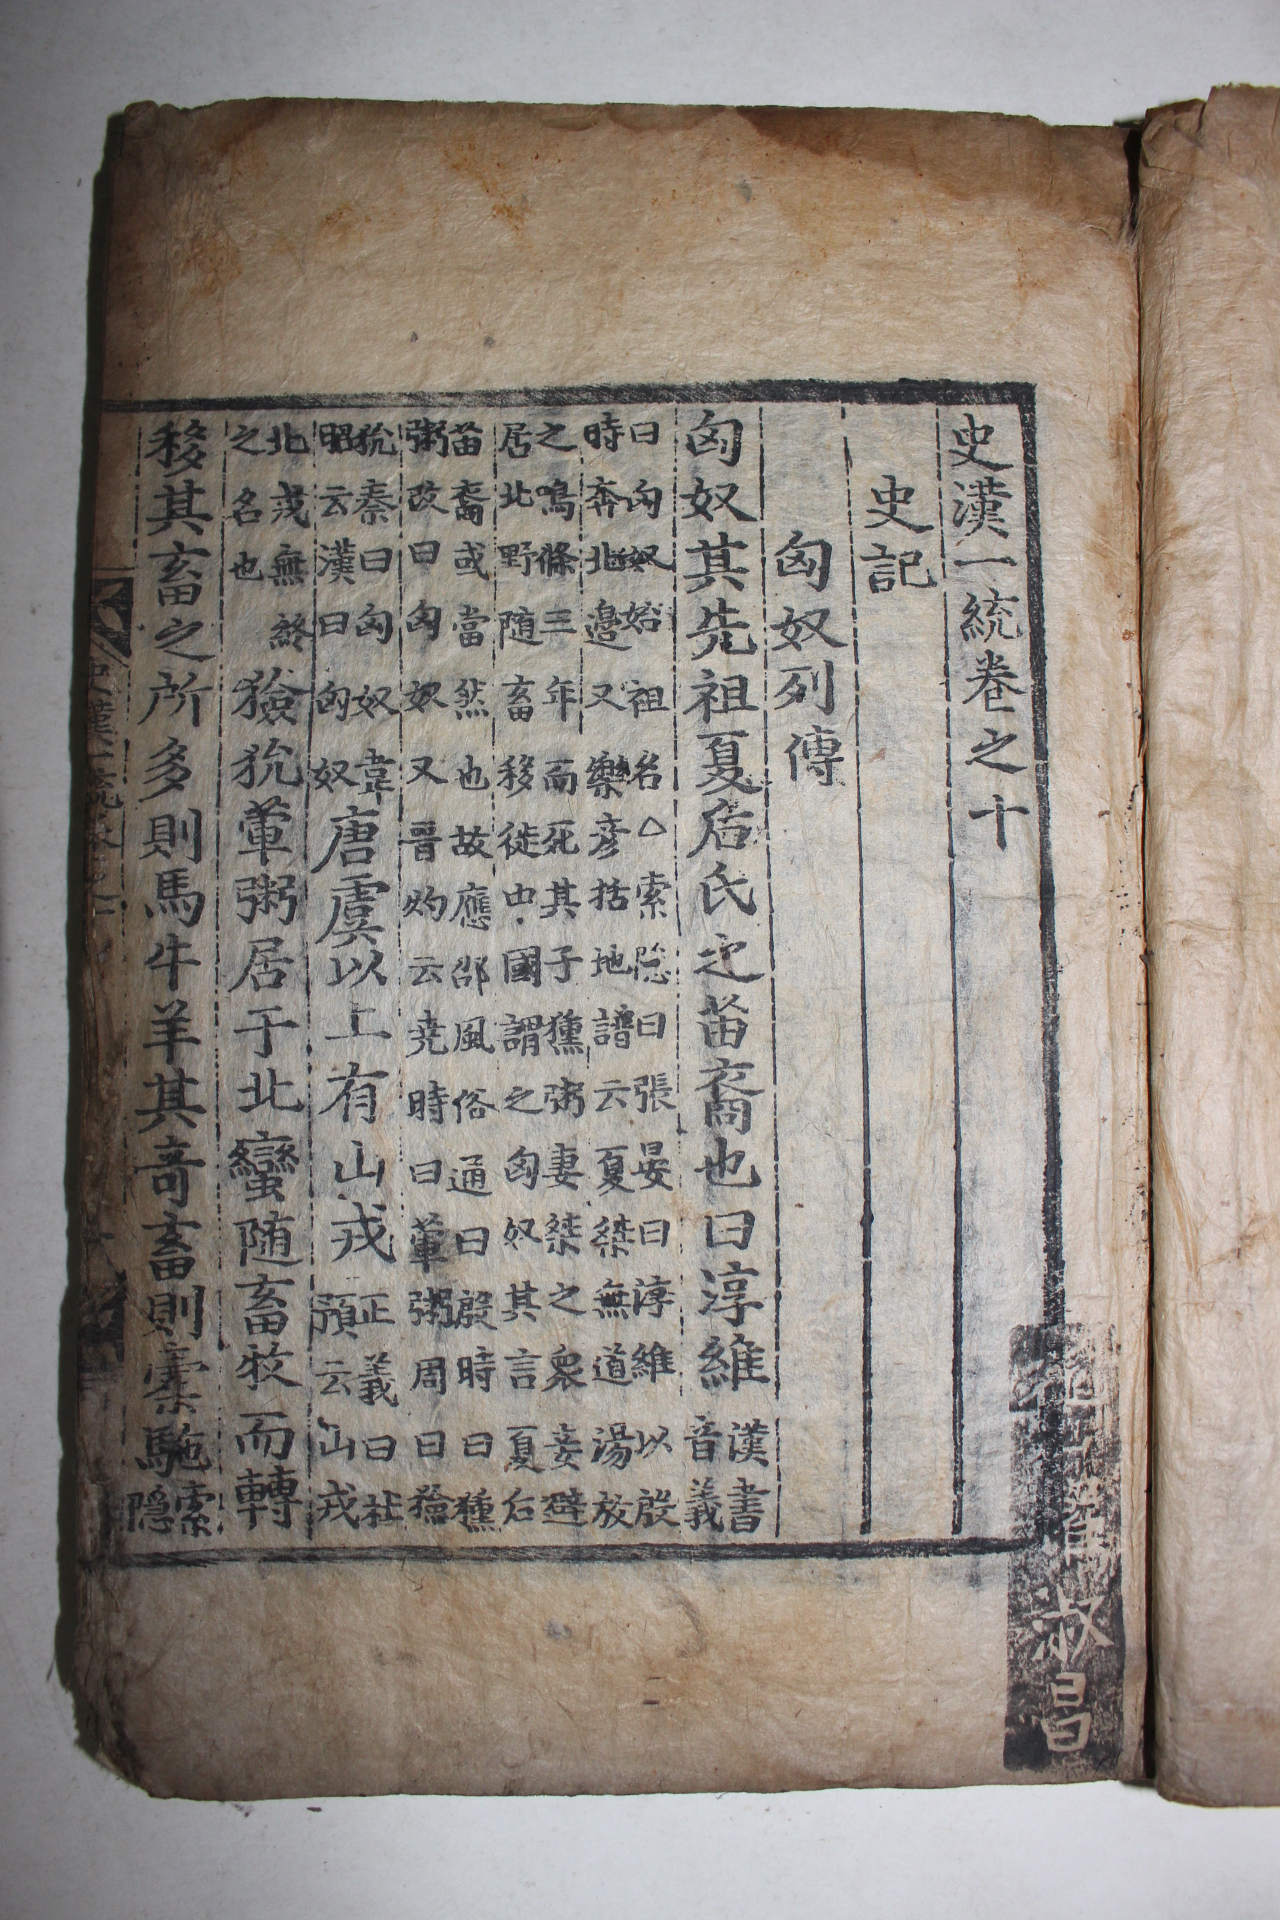 史漢一統卷之十
史記
匈奴列傳
匈奴其先祖夏后氏之苗裔也曰淳維漢書音義
曰匈奴始祖名△索隐曰張晏曰淳維以殷
時奔北邉又樂彦括地譜云夏桀無道湯放
之鳴條三年而死其子獯粥妻桀之衆妾避
居北野随畜移徙中國謂之匈奴其言夏后
苗裔或當然也故應邵風俗通曰殷時曰獯
粥改曰匈奴又晋灼云尭時曰葷粥周曰獫
狁秦曰匈奴韋昭云漢曰匈奴唐虞以上有山戎正義曰杜預云山戎
北戎無終之名也獫狁葷粥居于北蠻随畜牧而轉
移其畜之所多則馬牛羊其竒畜則橐駞索隐
淑昌